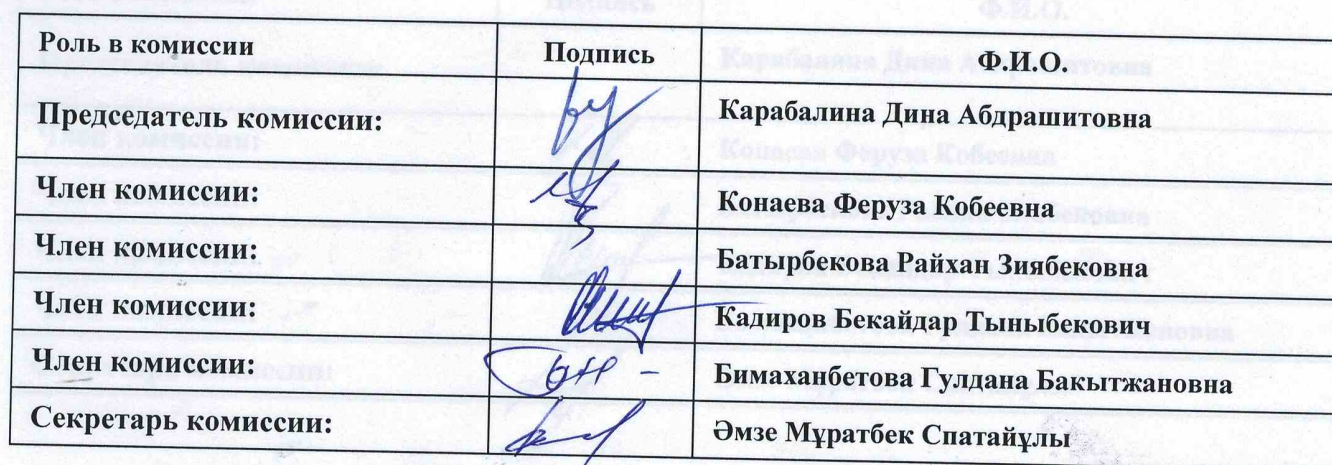 Роль в комиссии Подпись Ф.И.О.
Председатель комиссии: Карабалина Дина Абдрашитовна
Член комиссии: Конаева Феруза Кобеевна
Член комиссии: Батырбекова Райхан Зиябековна
Член комиссии: Кадиров Бекайдар Тыныбекович
Член комиссии: Бимаханбетова Гулдана Бакытжановна
Секретарь комиссии: Әмзе Мұратбек Спатайұлы